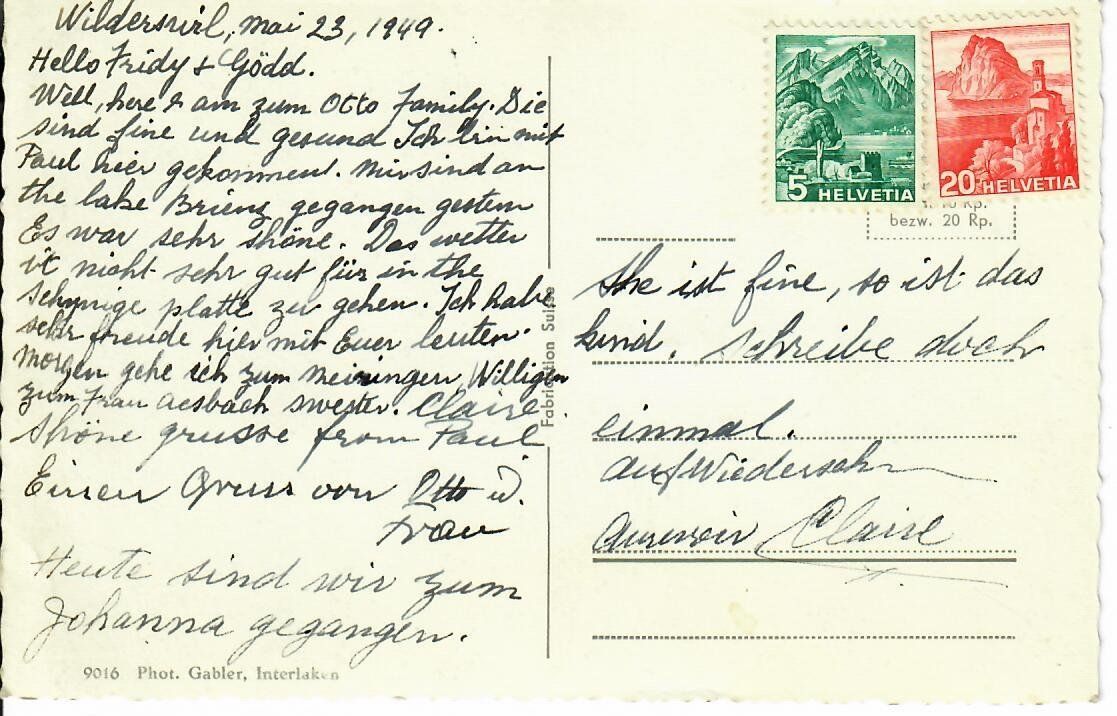 Wilderswil, Mai 23, 1949.
Hello Fridy & Gödd.
Well, here I am zum Otto Family. Die
sind fine und gesund Ich bin mit
Paul hier gekommen. Mir sind an
the lake Brienz gegangen gestern
Es war sehr shöne. Das wetter
ist nicht sehr gut für in the
Schynige platte zu gehen. Ich habe
sehr freude hier mit Euer leuten.
Morgen gehe ich zum Meiringen, Willigen
zum Frau Aesbach swester. Claire
Shöne grusse from Paul
Einen Gruss von Otto u.
Frau
Heute sind wir zum
Johanna gegangen.
9016 Phot. Gabler, Interlaken
Fabrication Suisse
5 HELVETIA
20 HELVETIA
10 Rp.
bezw. 20 Rp.
She ist fine, so ist das
kind. Schreibe doch
einmal.
auf Wiedersehn
aurevoir Claire